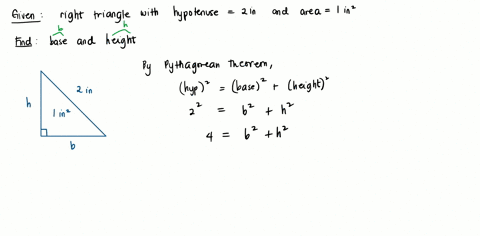 Given: right triangle with hypotenuse = 2 in and area = 1 in²
b h
Find: base and height
By Pythagorean Theorem,
(hyp)² = (base)² + (height)²
2² = b² + h²
4 = b² + h²
h
2 in
1 in²
b